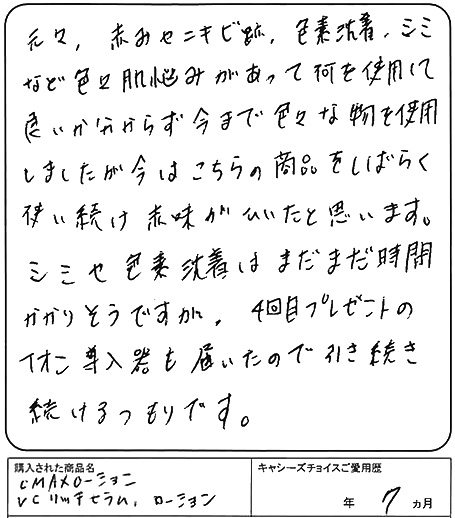 元々、赤みやニキビ跡、色素沈着、シミ
など色々肌悩みがあって何を使用して
良いか分からず今まで色々な物を使用
しましたが今はこちらの商品をしばらく
使い続け赤味がひいたと思います。
シミや色素沈着はまだまだ時間
かかりそうですが、4回目プレゼントの
イオン導入器も届いたので引き続き
続けるつもりです。
購入された商品名
CMAXローション
VCリッチセラム、ローション
キャシーズチョイスご愛用歴
年 7 ヵ月